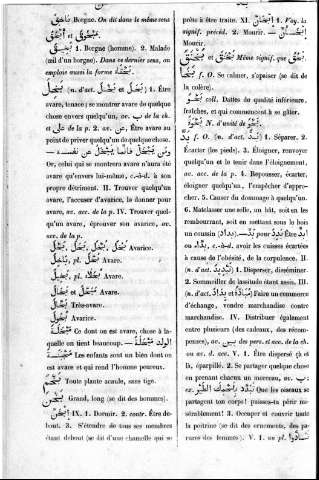 بَاخِقٌ Borgne. On dit dans le même sens
مَبْخُوقٌ et أَبْخَقُ
بَخِيقٌ 1. Borgne (homme). 2. Malade
(œil d'un borgne). Dans ce dernier sens, on
emploie aussi la forme
بَخِلَ (n. d'act. بُخْلٌ et بَخَلٌ) 1. Être
avare, tenace; se montrer avare de quelque
chose envers quelqu'un, ac. ou ب de la ch.
et على de la p. 2. av. عن, Être avare au
point de priver quelqu'un de quelque chose.
ومن يبخل فانما يبخل عن نفسه —
Or, celui qui se montrera avare n'aura été
avare qu'envers lui-même, c.-à-d. à son
propre détriment. II. Trouver quelqu'un
avare, l'accuser d'avarice, la donner pour
avare, ac. acc. de la p. IV. Trouver quel-
qu'un avare, éprouver son avarice, ac.
acc. de la p.
بُخْلٌ, بَخْلٌ, بَخَلٌ, بُخُلٌ Avarice.
بَاخِلٌ, pl. بُخَّلٌ Avare.
بَخِيلٌ, pl. بُخَلَاءُ Avare.
بَخَّالٌ et مُبَخَّلٌ Avare.
بَخَّالٌ Très-avare.
بُخُولٌ Avarice.
مَبْخَلَةٌ Ce dont on est avare, chose à la-
quelle on tient beaucoup. — الولد مبخلة
مجبنة Les enfants sont un bien dont on
est avare et qui rend l'homme peureux.
Toute plante acaule, sans tige.
بَخْنٌ Grand, long (se dit des hommes).
IX. 1. Dormir. 2. contr. Être de-
bout. 3. S'étendre de tous ses membres
étant debout (se dit d'une chamelle qui se
prête à être traite. XI. إِبْخَانَّ 1. V. ay. la
signif. précéd. 2. Mourir. —
Mourir.
et Même signif. que
بَخَا f. O. Se calmer, s'apaiser (se dit de
la colère).
بَخْوٌ coll. Dattes de qualité inférieure,
fraîches, et qui commencent à se gâter.
بَخْوَةٌ N. d'unité de بَخْوٌ.
بَدَّ f. O. (n. d'act. بَدٌّ) 1. Séparer. 2.
Écarter (les pieds). 3. Éloigner, renvoyer
quelqu'un et le tenir dans l'éloignement,
av. acc. de la p. 4. Repousser, écarter,
éloigner quelqu'un, l'empêcher d'appro-
cher. 5. Causer du dommage à quelqu'un.
6. Matelasser une selle, un bât, soit en les
rembourrant, soit en mettant sous le bois
un coussin (بداد). — بَدَّ pour بَدِدَ Être
ou بداد, c.-à-d. avoir les cuisses écartées
à cause de l'obésité, de la corpulence. II.
(n. d'act. تَبْدِيدٌ) 1. Disperser, disséminer.
2. Sommeiller de lassitude étant assis. III.
(n. d'act. مُبَادَّةٌ et بِدَادٌ) Faire un commerce
d'échange, vendre marchandise contre
marchandise. IV. Distribuer également
entre plusieurs (des cadeaux, des récom-
penses), ac. بين des pers. et acc. de la ch.
ou ac. d. acc. V. 1. Être dispersé çà et
là, éparpillé. 2. Se partager quelque chose
en prenant chacun un morceau, ac. ب
ex. Que les oiseaux se
partagent ton corps! puisses-tu périr mi-
sérablement! 3. Occuper et couvrir toute
la poitrine (se dit des ornements, des pa-
rures des femmes). V. 1. au pl. تبادّوا